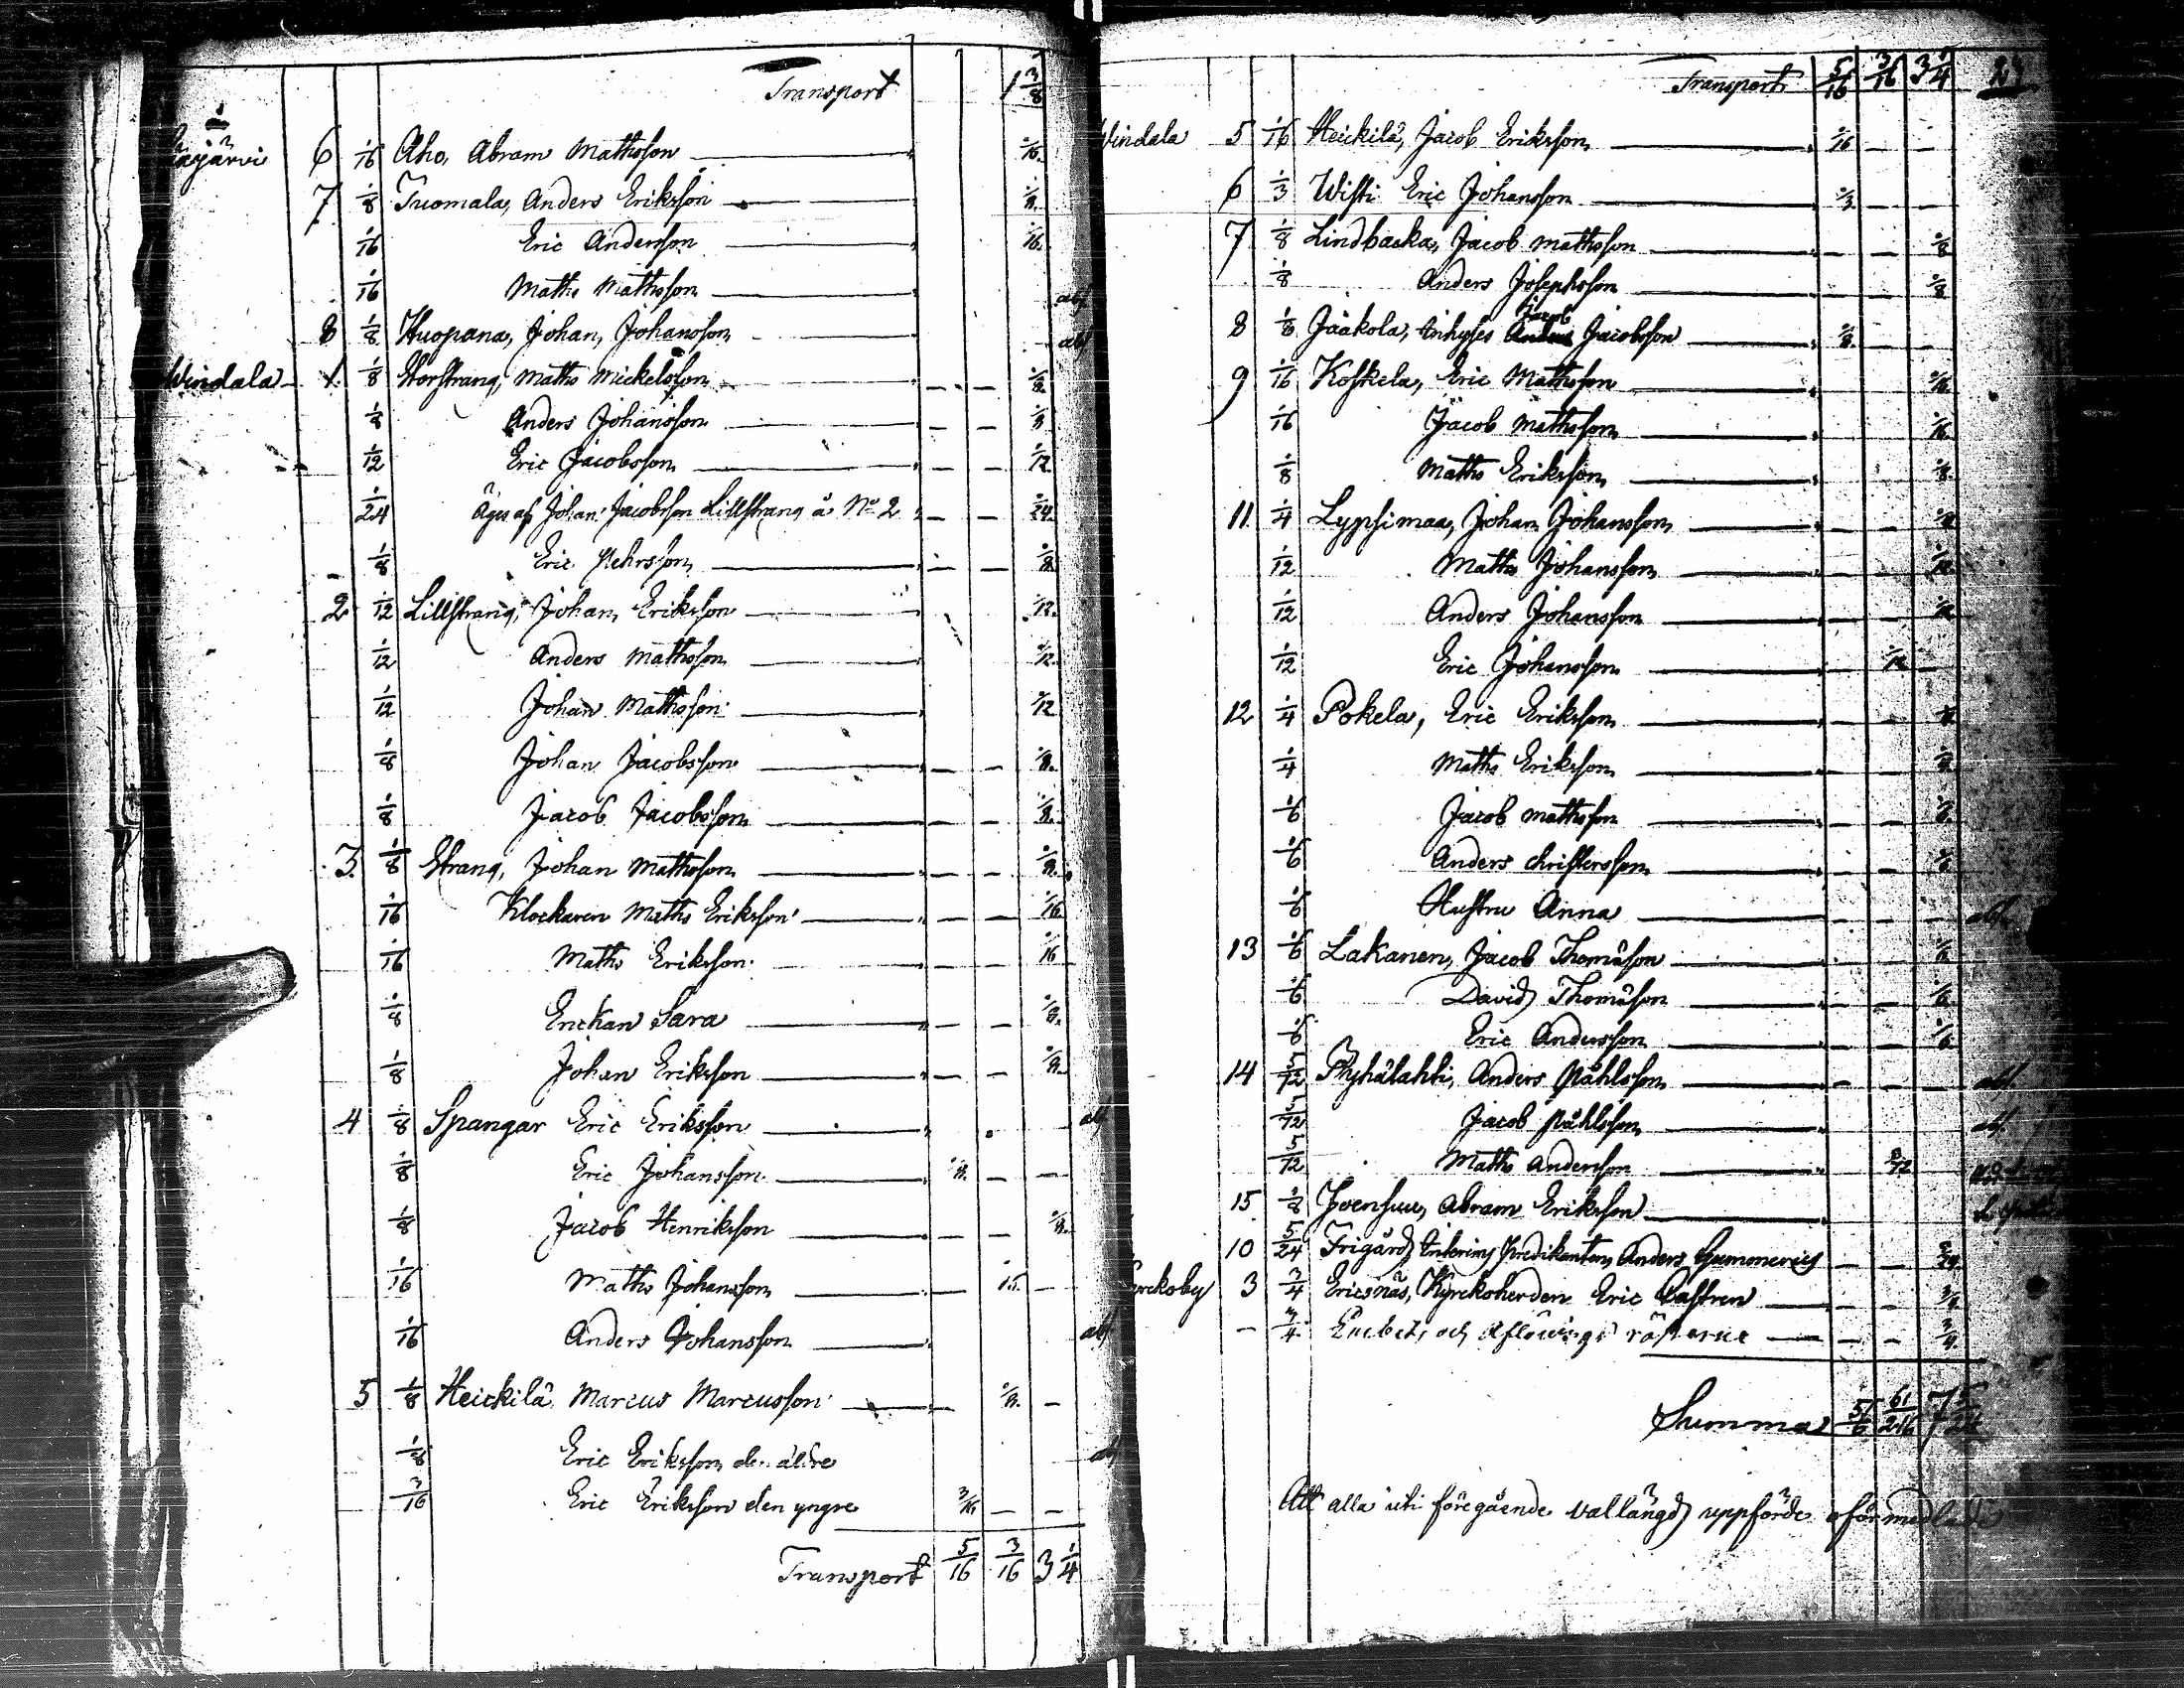 Transport 1 3/8
6 1/16 Aho, Abram Mathsson 1/16
7 1/8 Tuomala, Anders Eriksson 1/8
1/16 Eric Andersson 1/16
1/16 Maths Mathsson abs
8 1/8 Huopana, Johan Johansson abs
Windala 1 1/8 Storstrang, Maths Mickelsson — — 1/8
1/8 Anders Johansson — — 1/8
1/12 Eric Jacobsson — — 1/12
1/24 Äges af Johan Jacobsson Lillstrang å No 2 — — 1/24
1/8 Eric Pehrsson — — 1/8
2 1/12 Lillstrang, Johan Eriksson 1/12
1/12 Anders Mathsson 1/12
1/12 Johan Mathsson 1/12
1/8 Johan Jacobsson — — 1/8
1/8 Jacob Jacobsson — — 1/8
3 1/8 Strang, Johan Mathsson — — 1/8
1/16 Klockaren Maths Eriksson — — 1/16
1/16 Maths Eriksson — — 1/16
1/8 Enkan Sara — — 1/8
1/8 Johan Eriksson — — 1/8
4 1/8 Spangar Eric Eriksson abs
1/8 Eric Johansson 1/8 — —
1/8 Jacob Henriksson — — 1/8
1/16 Maths Johansson — 1/16 —
1/16 Anders Johansson abs
5 1/8 Heickilä Marcus Marcusson — 1/8 —
1/8 Eric Eriksson den äldre
3/16 Eric Eriksson den yngre 3/16 — —
Transport 5/16 3/16 3 1/4
Transport 5/16 3/16 3 1/4
Windala 5 1/16 Heickilä, Jacob Eriksson 1/16 — —
6 1/3 Wisti Eric Johansson 1/3 — —
7 1/8 Lindbacka, Jacob Mathsson — — 1/8
1/8 Anders Josephsson — — 1/8
Jacob
8 1/8 Jaakola, Inhyses Anders Jacobsson 1/8 — —
9 1/16 Koskela, Eric Mathsson 1/16
1/16 Jacob Mathsson 1/16
1/8 Maths Eriksson 1/8
11 1/4 Lypsimaa, Johan Johansson — — 1/4
1/12 Maths Johansson — — 1/12
1/12 Anders Johansson — — 1/12
1/12 Eric Johansson — 1/12 —
12 1/4 Pokela, Eric Eriksson — — 1/4
1/4 Maths Eriksson — — 1/4
1/6 Jacob Mathsson — — 1/6
1/6 Anders Christersson — — 1/6
1/6 Hustru Anna — — — abs
13 1/6 Lakanen, Jacob Thomasson 1/6
1/6 David Thomasson — — 1/6
1/6 Eric Andersson — — 1/6
14 5/72 Pyhälahti, Anders Påhlsson — — — abs
5/72 Jacob Påhlsson abs
5/12 Maths Andersson
15 1/8 Joensuu, Abram Eriksson
10 5/24 Frigård Interims Predikanten Anders Gummerus — — 5/24
3 3/4 Ericsnäs, Kyrkoherden Eric Castren — — 3/4
— 3/4 och rösterne — — 3/4
Summa
Att alla uti föregående vallängd uppförde